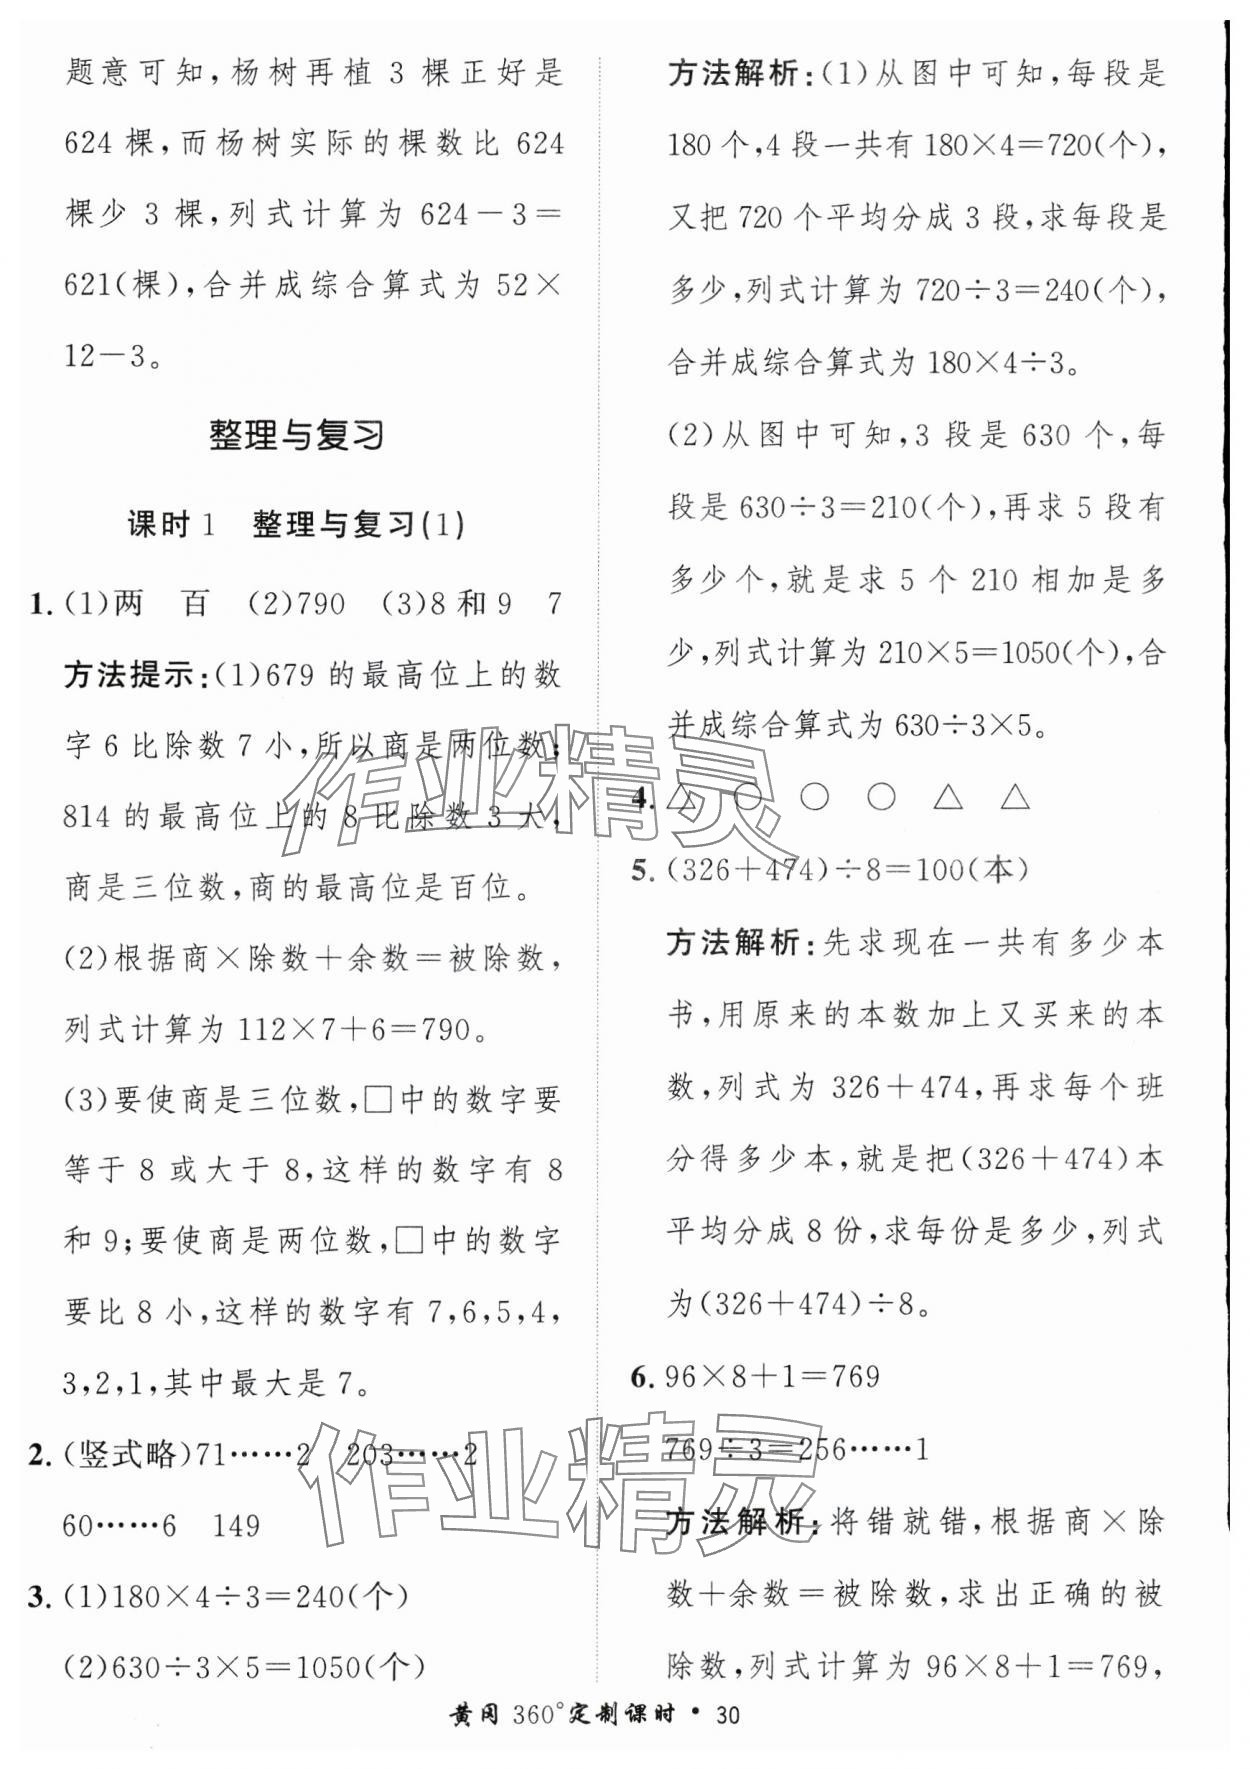 题意可知,杨树再植 3 棵正好是
624 棵,而杨树实际的棵数比 624
棵少 3 棵,列式计算为 624－3＝
621(棵),合并成综合算式为 52×
12－3。
整理与复习
课时 1　整理与复习(1)
1. (1)两　百　(2)790　(3)8 和 9　7
方法提示:(1)679 的最高位上的数
字 6 比除数 7 小,所以商是两位数;
814 的最高位上的 8 比除数 3 大,
商是三位数,商的最高位是百位。
(2)根据商×除数＋余数＝被除数,
列式计算为 112×7＋6＝790。
(3)要使商是三位数,□中的数字要
等于 8 或大于 8,这样的数字有 8
和 9;要使商是两位数,□中的数字
要比 8 小,这样的数字有 7,6,5,4,
3,2,1,其中最大是 7。
2. (竖式略)71……2　203……2
60……6　149
3. (1)180×4÷3＝240(个)
(2)630÷3×5＝1050(个)
方法解析:(1)从图中可知,每段是
180 个,4 段一共有 180×4＝720(个),
又把 720 个平均分成 3 段,求每段是
多少,列式计算为 720÷3＝240(个),
合并成综合算式为 180×4÷3。
(2)从图中可知,3 段是 630 个,每
段是 630÷3＝210(个),再求 5 段有
多少个,就是求 5 个 210 相加是多
少,列式计算为 210×5＝1050(个),合
并成综合算式为 630÷3×5。
4. △　○　○　○　△　△
5. (326＋474)÷8＝100(本)
方法解析:先求现在一共有多少本
书,用原来的本数加上又买来的本
数,列式为 326＋474,再求每个班
分得多少本,就是把(326＋474)本
平均分成 8 份,求每份是多少,列式
为(326＋474)÷8。
6. 96×8＋1＝769
769÷3＝256……1
方法解析:将错就错,根据商×除
数＋余数＝被除数,求出正确的被
除数,列式计算为 96×8＋1＝769,
黄冈 360°定制课时・30
作业精灵
作业精灵